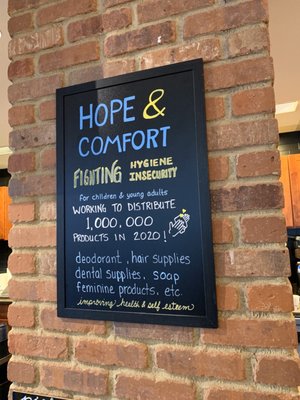 HOPE &
COMFORT
FIGHTING HYGIENE
INSECURITY
for children & young adults
WORKING TO DISTRIBUTE
1,000,000
PRODUCTS IN 2020!
deodorant, hair supplies
dental supplies, soap
feminine products, etc.
improving health & self esteem